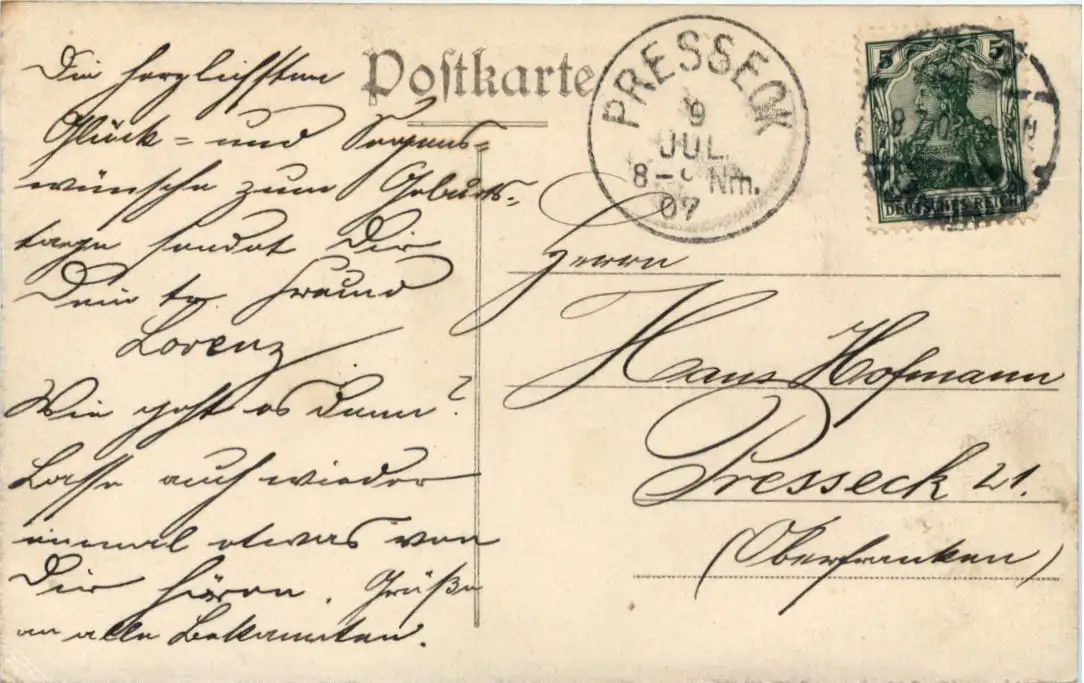 Postkarte
PRESSECK
9
JUL.
8-9 Nm.
07
5 5
DEUTSCHES REICH
Die herzlichsten
Glück= und Segens=
wünsche zum Geburts=
tage sendet Dir
Dein tr. Freund
Lorenz
Wie geht es Dann?
Lasse auch wieder
einmal etwas von
Dir hören. Grüße
an alle Bekannten.
Herrn
Hans Hofmann
Presseck 21.
(Oberfranken)